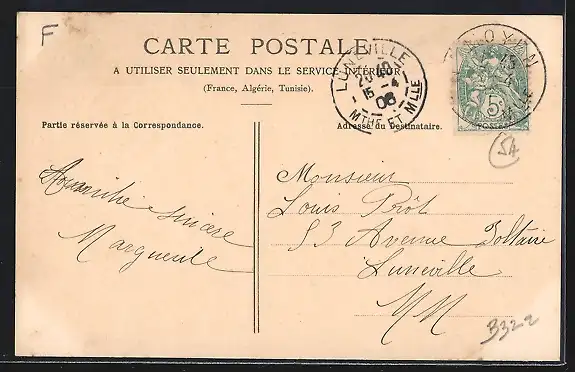 F
CARTE POSTALE
A UTILISER SEULEMENT DANS LE SERVICE INTÉRIEUR
(France, Algérie, Tunisie).
LUNÉVILLE
20 40
15 - 4
06
MTHE ET MLLE
5c
POSTES
54
Partie réservée à la Correspondance.
Adresse du Destinataire.
sincère
Marguerite
Monsieur
Louis Prôt
53 Avenue Voltaire
Lunéville
MM
B322